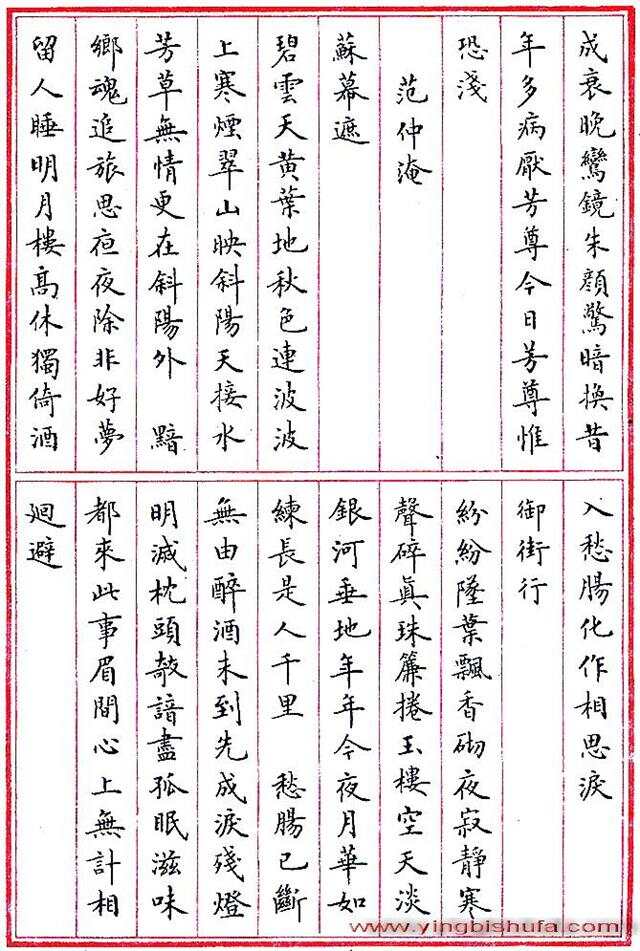 成衰晚鸞鏡朱顏驚暗換昔
年多病厭芳尊今日芳尊惟
恐淺
范仲淹
蘇幕遮
碧雲天黃葉地秋色連波波
上寒煙翠山映斜陽天接水
芳草無情更在斜陽外 黯
鄉魂追旅思夜夜除非好夢
留人睡明月樓高休獨倚酒
入愁腸化作相思淚
御街行
紛紛墜葉飄香砌夜寂靜寒
聲碎真珠簾捲玉樓空天淡
銀河垂地年年今夜月華如
練長是人千里 愁腸已斷
無由醉酒未到先成淚殘燈
明滅枕頭敧諳盡孤眠滋味
都來此事眉間心上無計相
迴避
www.yingbishufa.com